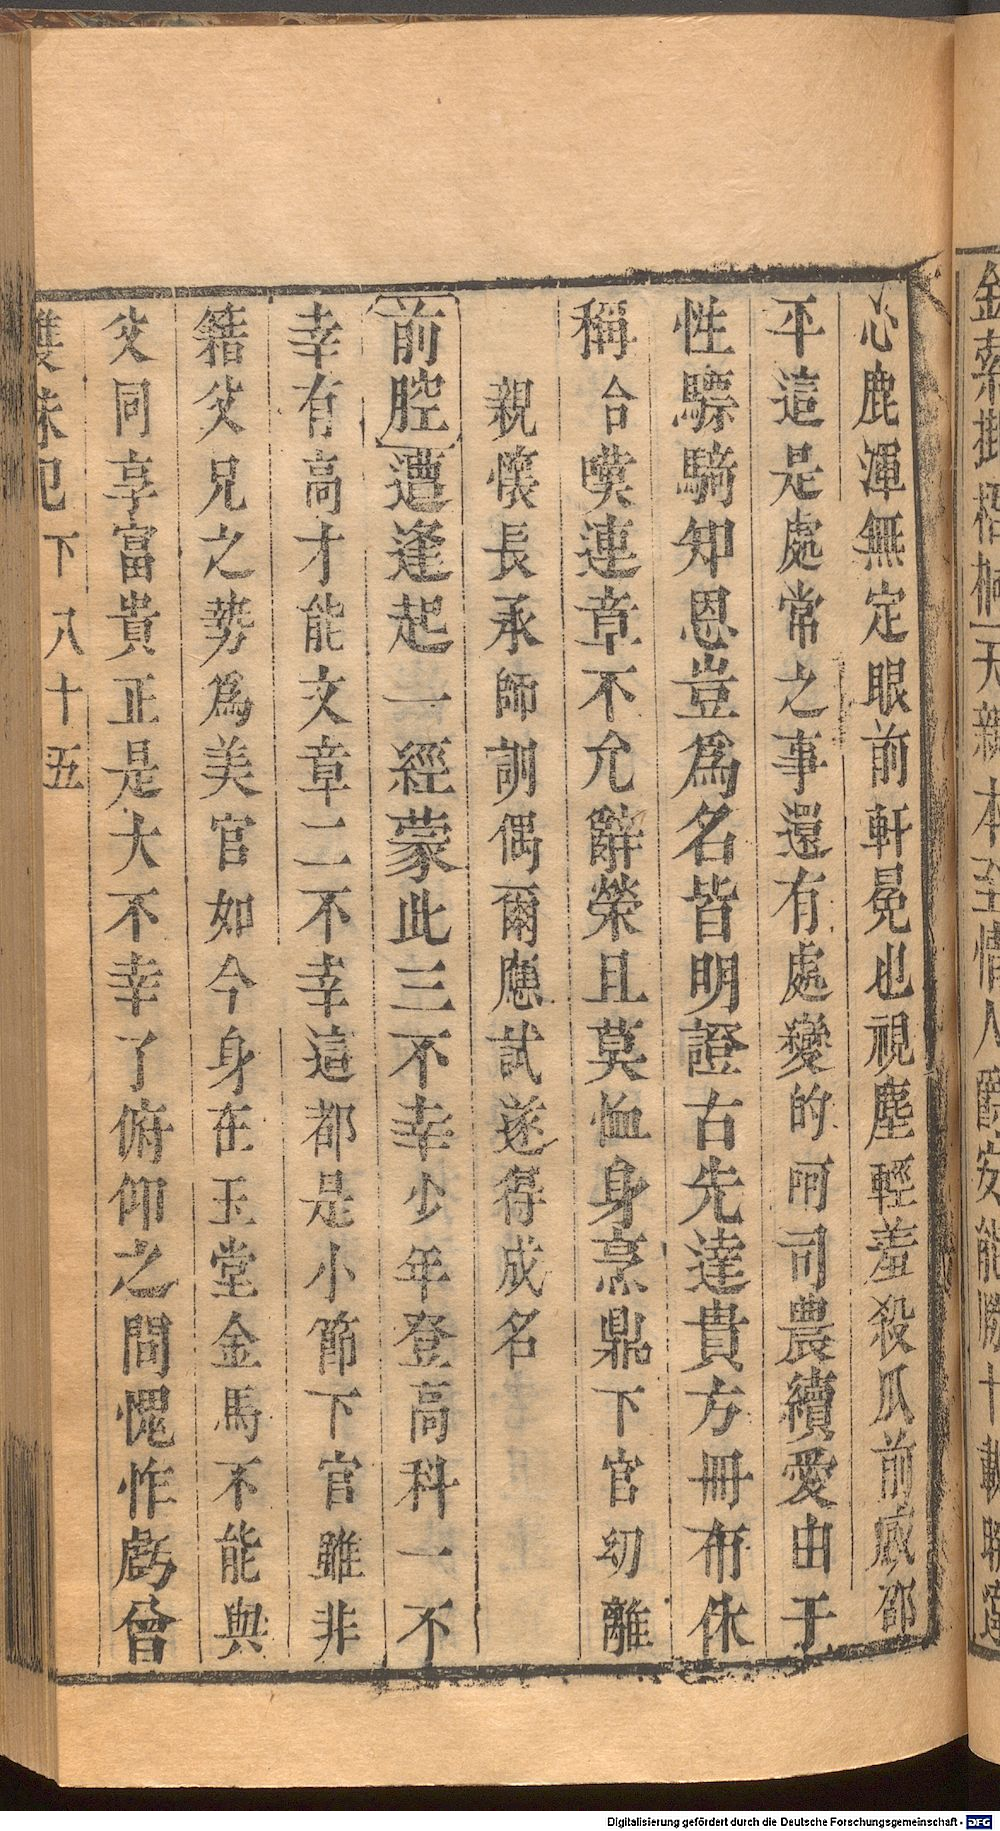 天親本至情人爵安能勝十載
心鹿渾無定眼前軒冕也視塵輕羞殺瓜前感邵
平這是處常之事還有處變的呵司農續愛由于
性驃騎知恩豈爲名皆明證古先達貴方冊布休
稱台嘆連章不允辭榮且莫恤身烹鼎下官幼離
親懷長承師訓偶爾應試遂得成名
前腔遭逢起一經蒙此三不幸少年登高科一不
幸有高才能文章二不幸這都是小節下官雖非
籍父兄之勢爲美官如今身在玉堂金馬不能與
父同享富貴正是大不幸了俯仰之間愧怍虧曾
雙珠記 下 八十五
Digitalisierung gefördert durch die Deutsche Forschungsgemeinschaft - DFG